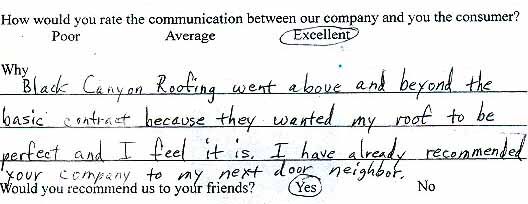 How would you rate the communication between our company and you the consumer?
Poor Average Excellent
Why
Black Canyon Roofing went above and beyond the
basic contract because they wanted my roof to be
perfect and I feel it is. I have already recommended
your company to my next door neighbor.
Would you recommend us to your friends? Yes No